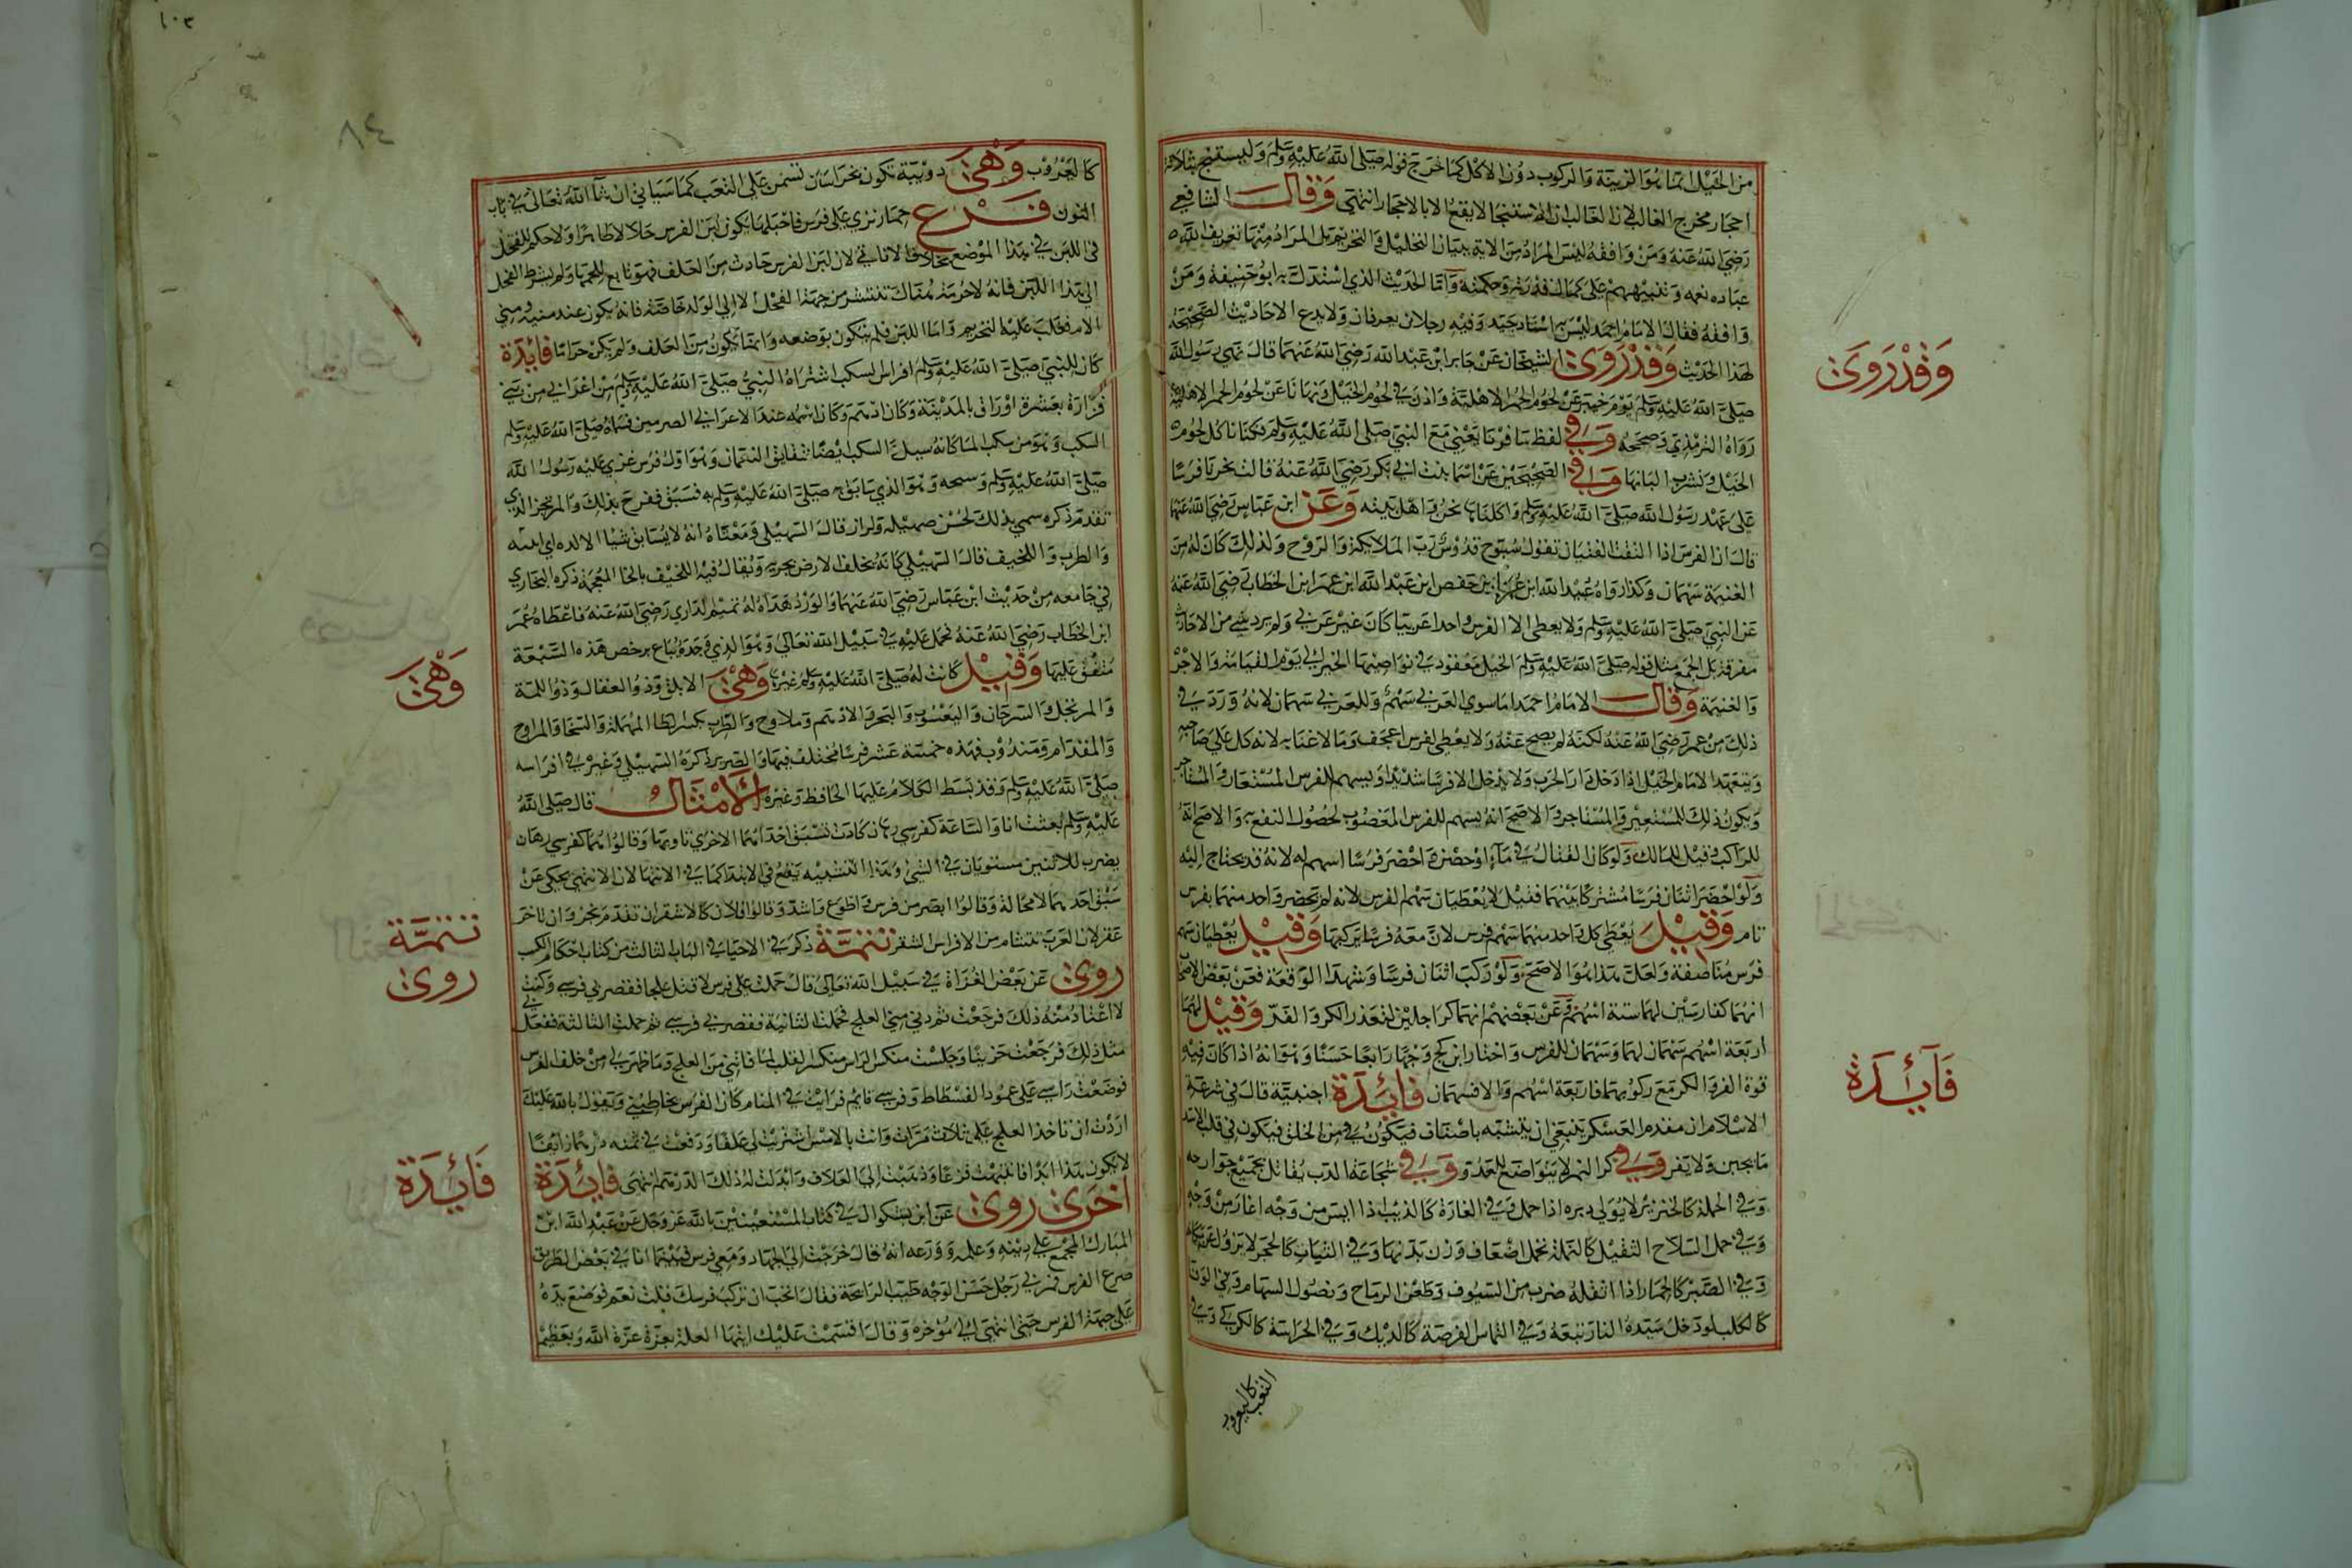 من الخيل انما هو الزينة والركوب دون الاكل كما خرج قوله صلى الله عليه وسلم وليستنج بثلاثة
احجار مخرج الغالب لان الغالب ان الاستنجا لا يقع الا بالاحجار انتهى وقال الشافعي
رضي الله عنه ومن وافقه ليس المراد من الاية بيان التحليل والتحريم بل المراد منها تعريف الله
عباده نعمه وتنبيههم على كمال قدرته وحكمته واما الحديث الذي استدل به ابو حنيفة ومن
وافقه فقال الامام احمد ليس له اسناد جيد وفيه رجلان يعرفان ولا يدع الاحاديث الصحيحة
لهذا الحديث وقد روى الشيخان عن جابر ابن عبد الله رضي الله عنهما قال نهى رسول الله
صلى الله عليه وسلم يوم خيبر عن لحوم الحمر الاهلية واذن في لحوم الخيل ونهانا عن لحوم الحمر الاهلية
رواه الترمذي وصححه وفي لفظ سافرنا يعني مع النبي صلى الله عليه وسلم فكنا ناكل لحوم
الخيل ونشرب البانها وفي الصحيحين عن اسما بنت ابي بكر رضي الله عنه قالت نحرنا فرسا
على عهد رسول الله صلى الله عليه وسلم واكلناه نحن واهل بيته وعن ابن عباس رضي الله عنهما
قال ان الفرس اذا التقت الفئتان تقول سبوح قدوس رب الملائكة والروح ولذلك كان له من
الغنيمة سهمان وكذا رواه عبد الله ابن عمر ابن حفص ابن عبد الله ابن عمر ابن الخطاب رضي الله عنه
عن النبي صلى الله عليه وسلم ولا يعطى الا الفرس واحدا عربيا كان غير عربي ولم يرد شي من الاحاديث
مفرقة بل الجمع مثل قوله صلى الله عليه وسلم الخيل معقود في نواصيها الخير الى يوم القيامة والاجر
والغنيمة وقال الامام احمد ما سوى العربي سهم وللعربي سهمان لانه ورد في
ذلك من عمر رضي الله عنه لكنه لم يصح عنه ولا يعطى لفرس اعجف وما لا غنا به لانه كل على صاحبه
ويتعهد الامام الخيل اذا دخل دار الحرب ولا يدخل الا فرسا شديدا ويسهم للفرس المستعار والمستاجر
ويكون ذلك للمستعير والمستاجر والاصح انه يسهم للفرس المغصوب لحصول النفع به والاصح انه
للراكب وقيل للمالك ولو كان القتال في ماء او حصن واحضر فرسا اسهم له لانه قد يحتاج اليه
ولو احضر اثنان فرسا مشتركا بينهما فقيل لا يعطيان سهم الفرس لانه لم يحضر واحد منهما بفرس
تام وقيل يعطى كل واحد منهما سهم فرس لان معه فرسا يركبها وقيل يعطيان سهم
فرس مناصفة ولعل هذا هو الاصح ولو ركب اثنان فرسا وشهدا الوقعة فعن بعض الاصحاب
انهما كفارسين لهما ستة اسهم وعن بعضهم انهما كراجلين لتعذر الكر والفر وقيل لهما
اربعة اسهم سهمان لهما وسهمان للفرس واختار ابن كج وجها رابعا حسنا وهو انه اذا كان فيه
قوة الفر والكر مع ركوبهما فاربعة اسهم والا فسهمان فائدة اجنبية قال في شرعة
الاسلام ان مقدم العسكر ينبغي ان يتشبه باصناف فيكون في من الخلق فيكون في قلب الاسد
ما يجبن ولا يفر وفي كبر النمر لا يتواضع للعدو وفي شجاعة الدب يقاتل بجميع جوارحه
وفي الحملة كالخنزير لا يولي دبره اذا حمل وفي الغارة كالذيب اذا ايس من وجه اغار من وجه
وفي حمل السلاح الثقيل كالنملة تحمل اضعاف وزن بدنها وفي الثبات كالحجر لا يزول عن مكانه
وفي الصبر كالحمار اذا اثقله ضرب من السيوف وطعن الرماح ونصول السهام وفي الوفا
كالكلب لو دخل سيده النار تبعه وفي التماس الفرصة كالديك وفي الحراسة كالكركي وفي
التعب كاليعرو
وقد روى
فائدة
كاليعروب وهي دويبة تكون بخراسان تسمن على التعب كما سياتي ان شآ الله تعالى في باب
النون فرع حمار نزى على فرس فاحبلها يكون لبن الفرس حلالا طاهرا ولا حكم للفحل
في اللبن في هذا الموضع بخلاف الاناسي لان لبن الفرس حادث من العلف فهو تابع للحمها ولم يشرط الفحل
الى هذا اللبن فانه لا حرمة هناك تنتشر من جهة الفحل لا الى الولد خاصة فانه يكون عنه منه ومن
الام فغلب عليه التحريم واما اللبن فلم يتكون بوضعه وانما تكون من العلف ولم يكن حراما فائدة
كان للنبي صلى الله عليه وسلم افراس السكب اشتراه النبي صلى الله عليه وسلم من اعرابي من بني
فزارة بعشرة اوراق بالمدينة وكان ادهم وكان اسمه عند الاعرابي الضرس فسماه صلى الله عليه وسلم
السكب وهو من سكب الما كانه سيل والسكب ايضا شقايق النعمان وهو اول فرس غزى عليه رسول الله
صلى الله عليه وسلم وسبحه وهو الذي سابق صلى الله عليه وسلم به فسبق ففرح بذلك والمرتجز الذي
تقدم ذكره سمي بذلك لحسن صهيله ولزاز قال السهيلي ومعناه انه لا يسابق شيا الا لزه اي اثبته
والطرب واللخيف قال السهيلي كانه يلحف الارض بجريه ويقال فيه اللخيف بالخا المعجمة ذكره البخاري
في جامعه من حديث ابن عباس رضي الله عنهما والورد هداه له تميم الداري رضي الله عنه فاعطاه عمر
ابن الخطاب رضي الله عنه فحمل عليه في سبيل الله تعالى وهو الذي وجده يباع برخص هذه السبعة
متفق عليها وقيل كانت له صلى الله عليه وسلم غيرها وهي الابلق وذو العقال وذو اللمة
والمرتجل والسرحان واليعسوب والبحر والادهم وملاوح والطرب بكسر الطا المهملة والسحا والمراوح
والمقدام ومندوب فهذه خمسة عشر فرسا مختلف فيها والضرير ذكره السهيلي وغيره في افراسه
صلى الله عليه وسلم وقد بسط الكلام عليها الحافظ وغيره الامثال قال صلى الله
عليه وسلم بعثت انا والساعة كفرسي رهان كادت تسبق احداهما الاخرى تاويها وقالوا هما كفرسي رهان
يضرب للاثنين مستويان في الشئ وهذا التشبيه يقع في الابتدا كما في الانتها لان الانتهى يحكى عن
سبق احدهما لا محالة وقالوا ابصر من فرس واطوع واشد وقالوا فلان كالاشقر ان تقدم نحر وان تاخر
عقر لان العرب تتشام من الافراس الشقر تتمة ذكر في الاحيا في الباب الثالث من كتاب احكام الكسب
روى عن بعض الغزاة في سبيل الله تعالى قال حملت على فرس لاقتل علجا فقصر بي فرسي وكنت
لا اعتاد منه ذلك فرجعت ثم دنى مني العلج فحملت الثانية فقصر بي فرسي ثم حملت الثالثة ففعل
مثل ذلك فرجعت حزينا وجلست منكس الراس منكسر القلب لما فاتني من العلج وما ظهر لي من خلف الفرس
فوضعت راسي على عمود الفسطاط وفرسي قايم فرايت في المنام كان الفرس يخاطبني ويقول بالله عليك
اردت ان تاخذ العلج على ثلاث مرات وانت بالامس اشتريت لي علفا ودفعت في ثمنه درهما زايفا
لا يكون هذا ابدا فانتبهت فزعا وذهبت الى العلاف وابدلت له ذلك الدرهم انتهى فائدة
اخرى روى عن ابن بشكوال في كتاب المستغيثين بالله عز وجل عن عبد الله ابن
المبارك المجمع على دينه وعلمه وورعه انه قال خرجت الى الجهاد ومعي فرس فبينما انا في بعض الطريق
صرع الفرس فمر بي رجل حسن الوجه طيب الرايحة فقال اتحب ان تركب فرسك قلت نعم فوضع يده
على جبهة الفرس حتى انتهى الى مؤخره وقال اقسمت عليك ايتها العلة بعزة عزة الله وبعظيم
وهي
تتمة
روى
فائدة
٨٤
١٠٣